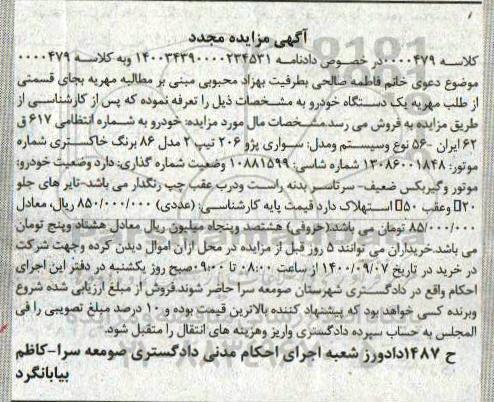 آگهی مزایده مجدد
کلاسه ۰۰۰۰۴۷۹در خصوص دادنامه ۱۴۰۰۳۴۳۹۰۰۰۰۲۳۴۵۳۱ وبه کلاسه ۰۰۰۰۴۷۹
موضوع دعوی خانم فاطمه صالحی بطرفیت بهزاد محبوبی مبنی بر مطالبه مهریه بجای قسمتی
از طلب مهریه یک دستگاه خودرو به مشخصات ذیل را تعرفه نموده که پس از کارشناسی از
طریق مزایده به فروش می رسد.مشخصات مال مورد مزایده: خودرو به شماره انتظامی ۶۱۷ ق
۶۲ ایران -۵۶ نوع وسیستم ومدل: سواری پژو ۲۰۶ تیپ ۲ مدل ۸۶ برنگ خاکستری شماره
موتور: ۱۳۰۸۶۰۰۱۸۴۸ شماره شاسی: ۱۰۸۸۱۵۹۹ وضعیت شماره گذاری: دارد وضعیت خودرو:
موتور وگیربکس ضعیف- سرتاسر بدنه راست ودرب عقب چپ رنگدار می باشد-تایر های جلو
۲۰ وعقب ۵۰ استهلاک دارد قیمت پایه کارشناسی: (عددی) ۸۵۰/۰۰۰/۰۰۰ ریال، معادل
۸۵/۰۰۰/۰۰۰ تومان می باشد.(حروفی) هشتصد وپنجاه میلیون ریال معادل هشتاد وپنج تومان
می باشد.خریداران می توانند ۵ روز قبل از مزایده در محل ازان اموال دیدن کرده وجهت شرکت
در خرید در تاریخ ۱۴۰۰/۰۹/۰۷ از ساعت ۰۸:۰۰ تا ۰۹:۰۰صبح روز یکشنبه در دفتر این اجرای
احکام واقع در دادگستری شهرستان صومعه سرا حاضر شوند.فروش از مبلغ ارزیابی شده شروع
وبرنده کسی خواهد بود که پیشنهاد کننده بالاترین قیمت بوده و ۱۰ درصد مبلغ تصویبی را فی
المجلس به حساب سپرده دادگستری واریز وهزینه های انتقال را متقبل شود.
ح ۱۴۸۷دادورز شعبه اجرای احکام مدنی دادگستری صومعه سرا-کاظم
بیابانگرد